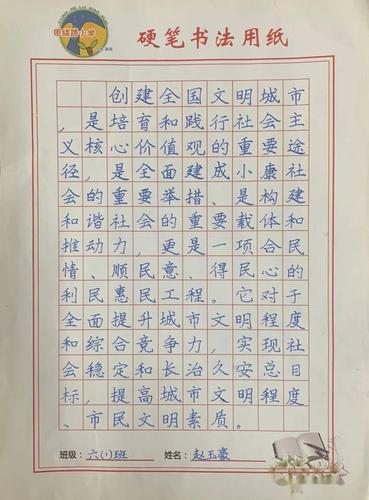 团结路小学
硬笔书法用纸
创建全国文明城市
，是培育和践行社会主
义核心价值观的重要途
径，是全面建成小康社
会的重要举措、是构建
和谐社会的重要载体和
推动力，更是一项合民
情、顺民意、得民心的
利民惠民工程。它对于
全面提升城市文明程度
和综合竞争力，实现社
会稳定和长治久安总目
标，提高城市文明程度
、市民文明素质。
班级：六(1)班 姓名：赵玉豪